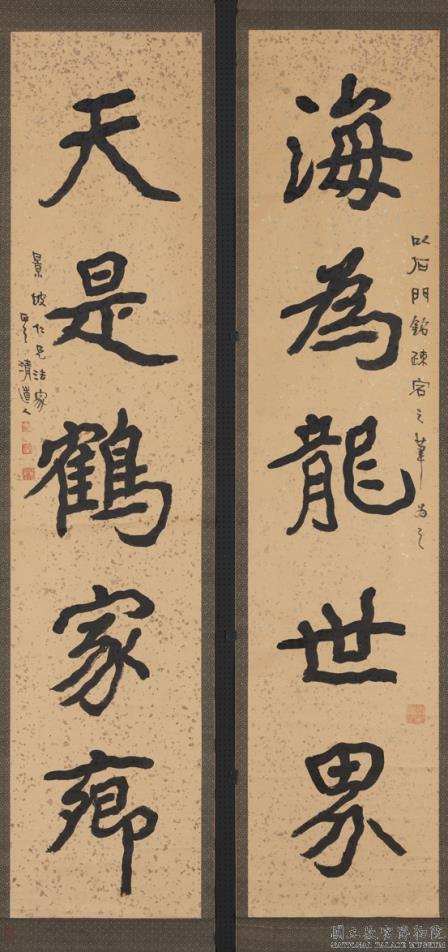 以石門銘疎宕之筆為之
海為龍世界
天是鶴家鄉
景坡仁兄法家
清道人
國立故宮博物院
NATIONAL PALACE MUSEUM